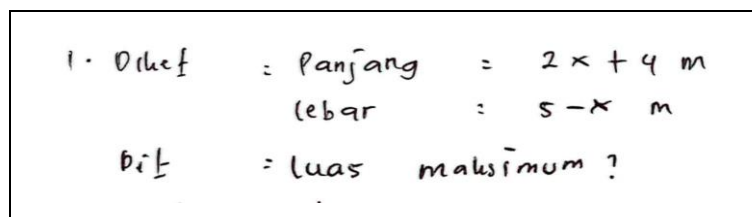 1. Diket : Panjang : 2x + 4 m
lebar : 5 - x m
Dit : luas maksimum ?